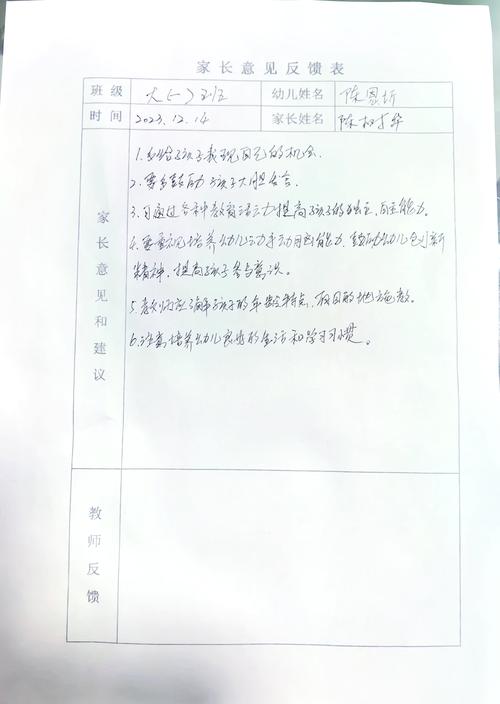 家长意见反馈表
班级 大(一)班 幼儿姓名 陈恩圻
时间 2023.12.14 家长姓名 陈树华
家长意见和建议
1.多给孩子表现自己的机会.
2.要多鼓励孩子大胆发言.
3.可通过各种教育活动提高孩子的独立,自主能力。
4.要重视培养幼儿动手动脑能力,鼓励幼儿创新
精神,提高孩子参与意识。
5.教师应了解孩子的年龄特点,有目的地施教。
6.注意培养幼儿良好的生活和学习习惯。
教师反馈